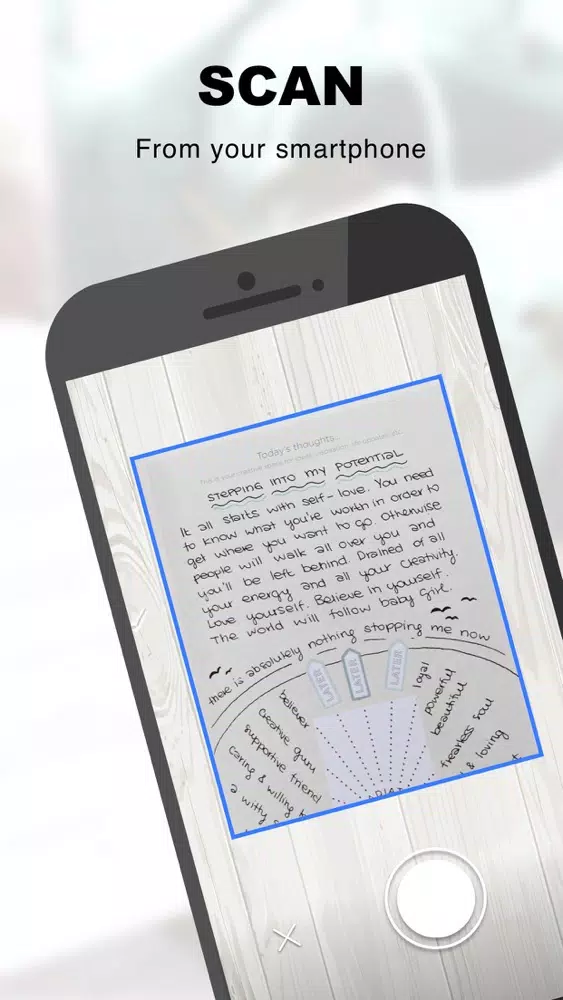 SCAN
From your smartphone
Today's thoughts...
STEPPING INTO MY POTENTIAL
It all starts with self-love. You need
to know what you're worth in order to
get where you want to go. Otherwise
people will walk all over you and
you'll be left behind. Drained of all
your energy and all your creativity.
Love yourself. Believe in yourself.
The world will follow baby girl.
there is absolutely nothing stopping me now
LATER
LATER
LATER
believer
creative guru
supportive friend
caring & willing
a witty
loyal
powerful
beautiful
fearless soul
& loving